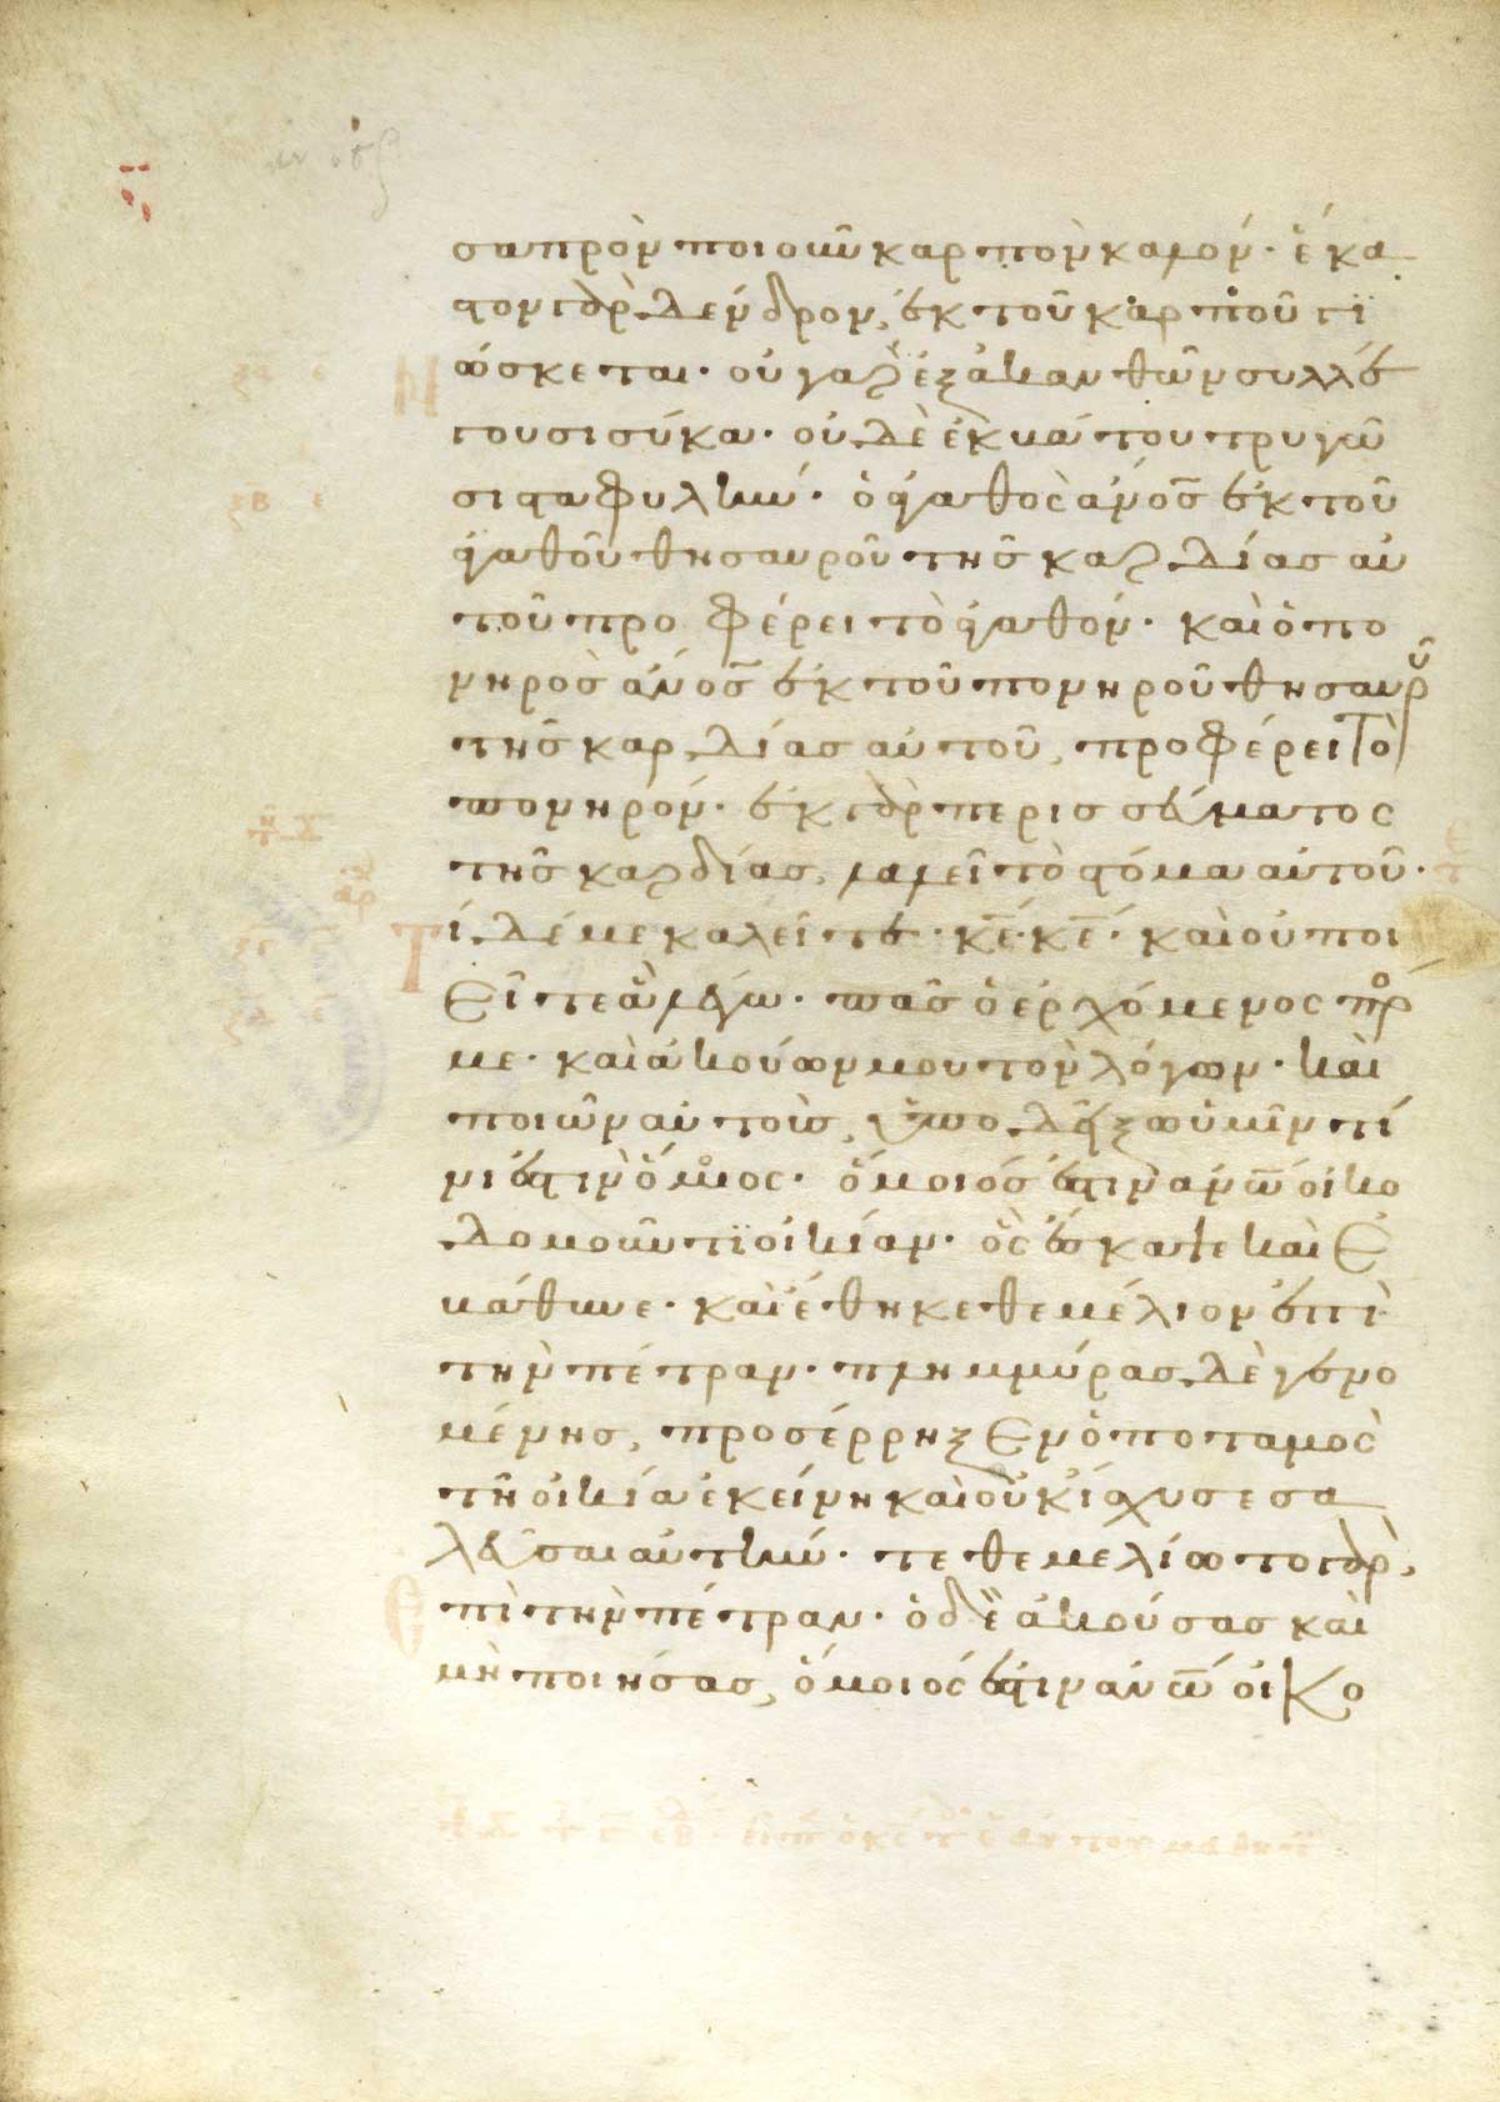 σαπρὸν ποιοῦν καρπὸν καλόν· ἕκα
στον γὰρ δένδρον, ἐκ τοῦ καρποῦ γϊ
ώσκεται· οὐ γὰρ ἐξ ἀκανθῶν συλλέ
γουσι σύκα· οὐδὲ ἐκ βάτου τρυγῶ
σι σταφυλὴν· ὁ ἀγαθὸς ἄνος ἐκ τοῦ
ἀγαθοῦ θησαυροῦ τῆς καρδίας αὐ
τοῦ προφέρει τὸ ἀγαθόν· καὶ ὁ πο
νηρὸς ἄνος ἐκ τοῦ πονηροῦ θησαυρῦ
τῆς καρδίας αὐτοῦ, προφέρει τὸ
πονηρόν· ἐκ γὰρ περισσεύματος
τῆς καρδίας, λαλεῖ τὸ στόμα αὐτοῦ·
Τί δέ με καλεῖτε· κε· κε· καὶ οὐ ποι
εῖτε ἃ λέγω· πᾶς ὁ ἐρχόμενος πρ
με· καὶ ἀκούων μου τὸν λόγων· καὶ
ποιῶν αὐτοὺς, ὑποδείξω ὑμῖν τί
νι ἐστὶν ὅμοιος· ὅμοιός ἐστιν ανω οἰκο
δομοῦντϊ οἰκίαν· ὃς ἔσκαψε καὶ ἐ
βάθυνε· καὶ ἔθηκε θεμέλιον ἐπὶ
τὴν πέτραν· πλημμύρας δὲ γενο
μένης, προσέρρηξεν ὁ ποταμὸς
τῆ οἰκία ἐκείνη καὶ οὐκ ἴσχυσε σα
λεῦσαι αὐτὴν· τεθεμελίωτο γὰρ,
ἐπὶ τὴν πέτραν· ὁ δὲ ἀκούσας καὶ
μὴ ποιήσας, ὅμοιός ἐστιν ανω οἰκο